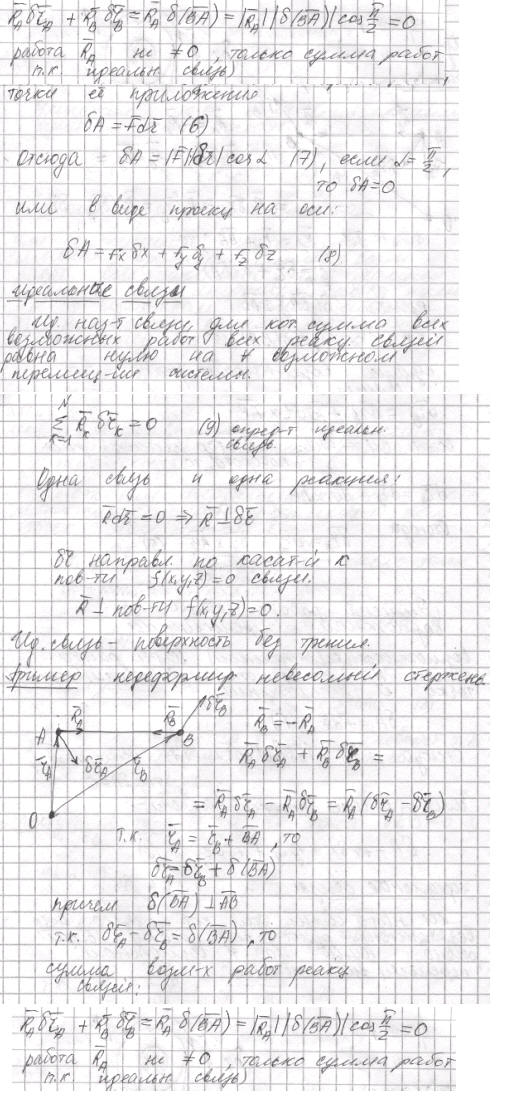 R̄_A δr̄_A + R̄_B δr̄_B = R̄_A δ(B̄Ā) = |R̄_A| |δ(B̄Ā)| cos π/2 = 0
работа R̄_A не ≠ 0, только сумма работ
т.к. идеальн. связь)
точки её приложения
δA = F̄dr̄ (6)
отсюда δA = |F̄||δr̄| cos α (7), если α = π/2,
то δA=0
или в виде проекц на оси:
δA = Fx δx + Fy δy + Fz δz (8)
идеальные связи
Ид. наз-т связи, для кот. сумма всех
возможных работ всех реакц. связей
равна нулю на ∀ возможном
перемещ-ии системы.
N
Σ R̄_k δr̄_k = 0 (9) опред-т идеальн.
k=1 связь.
Одна связь и одна реакция:
R̄dr̄ = 0 ⇒ R̄ ⊥ δr̄
δr̄ направл. по касат-й к
пов-ти f(x,y,z)=0 связи.
R̄ ⊥ пов-ти f(x,y,z)=0.
Ид. связь – поверхность без трения.
Пример недеформир. невесомый стержень
δr̄_B
R̄_A R̄_B R̄_B = -R̄_A
A B R̄_A δr̄_A + R̄_B δr̄_B =
r̄_A δr̄_A r̄_B
= R̄_A δr̄_A - R̄_A δr̄_B = R̄_A (δr̄_A - δr̄_B)
O
т.к. r̄_A = r̄_B + B̄Ā, то
δr̄_A = δr̄_B + δ(B̄Ā)
причем δ(B̄Ā) ⊥ ĀB̄
т.к. δr̄_A - δr̄_B = δ(B̄Ā), то
сумма возм-х работ реакц
связей:
R̄_A δr̄_A + R̄_B δr̄_B = R̄_A δ(B̄Ā) = |R̄_A| |δ(B̄Ā)| cos π/2 = 0
работа R̄_A не ≠ 0, только сумма работ
т.к. идеальн. связь)